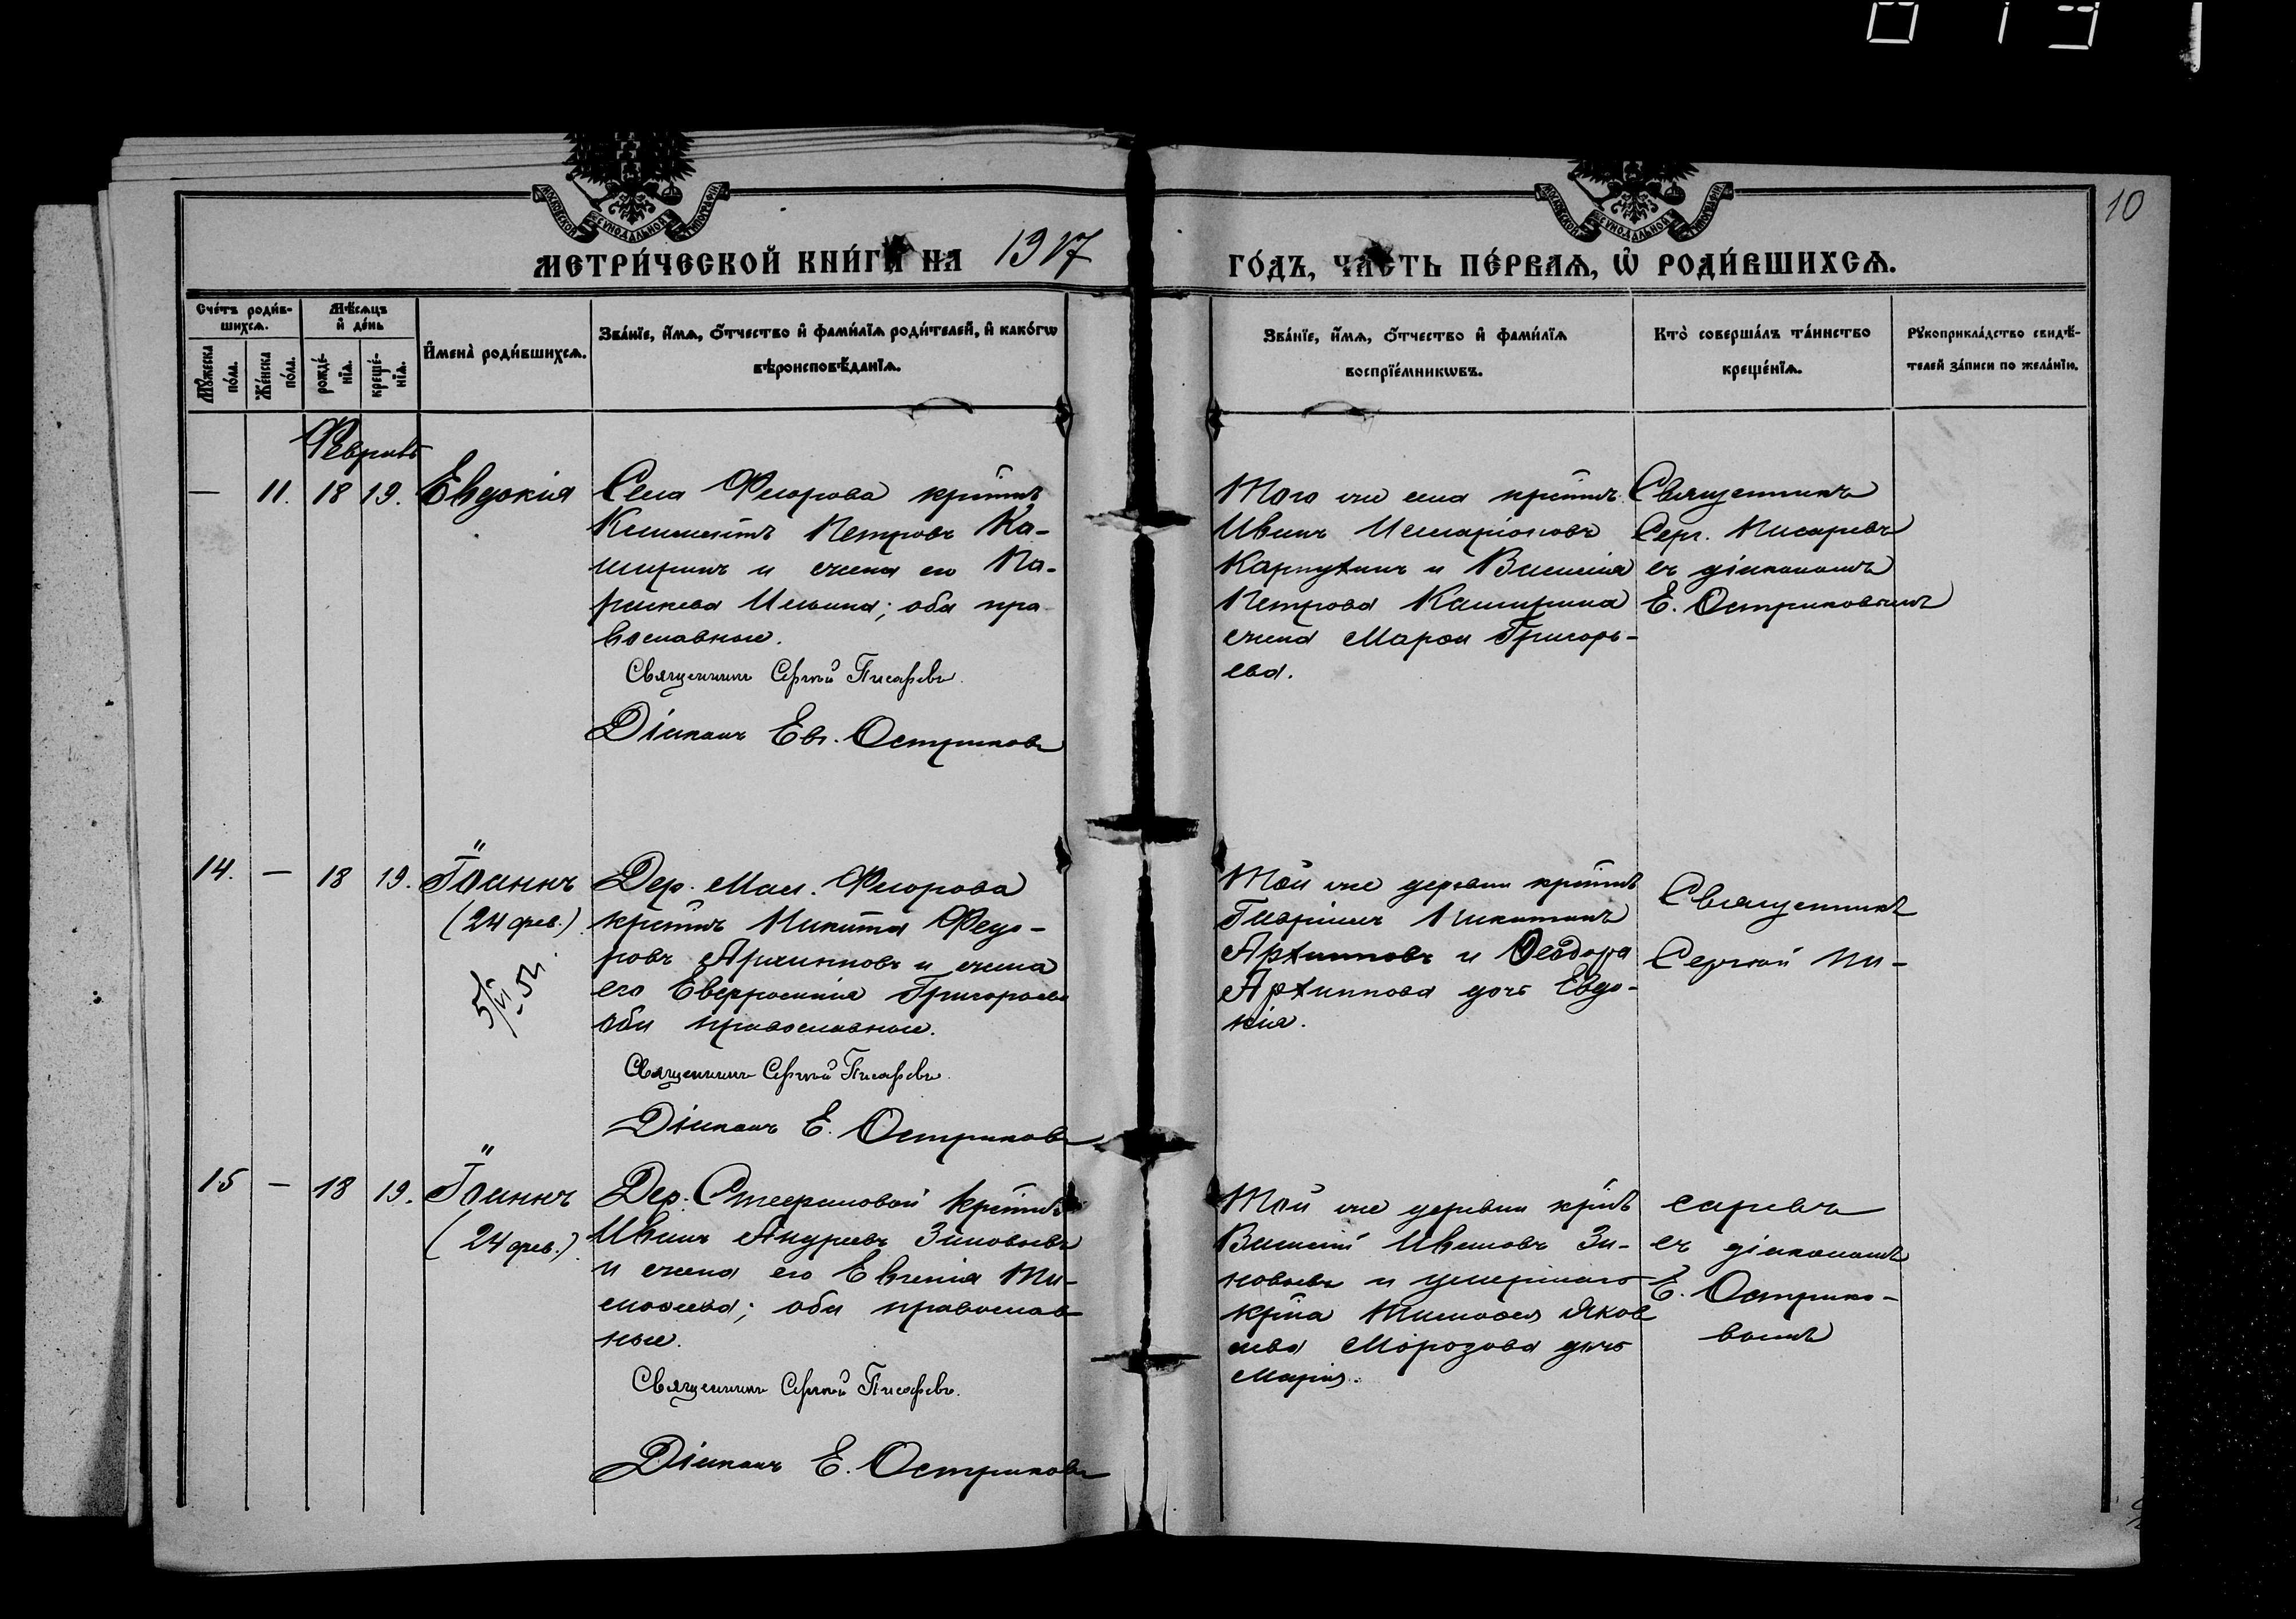 10
МОСКОВСКОЙ СѴНОДАЛЬНОЙ ТИПОГРАФІИ
МОСКОВСКОЙ СѴНОДАЛЬНОЙ ТИПОГРАФІИ
МЕТРИ́ЧЕСКОЙ КНИ́ГИ НА 1917 ГО́ДЪ, ЧА́СТЬ ПЕ́РВАѦ, Ѡ҆ РОДИ́ВШИХСѦ.
Сче́тъ роди́в-
шихсѧ.
Мѣ́сѧцъ
и҆ де́нь
Мꙋ́жеска
по́ла.
Же́нска
по́ла.
рожде́-
нїѧ.
креще́-
нїѧ.
И҆мена̀ роди́вшихсѧ.
Зва́нїе, и҆́мѧ, ѻ҆́тчество и҆ фами́лїѧ роди́телей, и҆ како́гѡ
вѣроисповѣ́данїѧ.
Зва́нїе, и҆́мѧ, ѻ҆́тчество и҆ фами́лїѧ
воспрїе́мникѡвъ.
Кто̀ соверша́лъ та́инство
креще́нїѧ.
Рꙋкоприкла́дство свидѣ́-
телей за́писи по жела́нїю.
Февраль
— 11. 18 19. Евдокія
Села Флорова крестнъ
Климентъ Петровъ Ка-
ширинъ и жена его Па-
раскева Ильина; оба пра
вославные.
Священникъ Сергій Писаревъ.
Діаконъ Евг. Остриковъ
Того же села крестнъ
Иванъ Иларіоновъ
Карпухинъ и Василія
Петрова Каширина
жена Марѳа Григорь-
ева.
Священникъ
Серг. Писаревъ
съ діакономъ
Е. Остриковымъ
14. — 18 19. Іоаннъ
(24 фев.)
5/VI 52.
Дер. Мал. Флорова
крестнъ Никита Федо-
ровъ Архиповъ и жена
его Евфросинія Григорьева
оба православные.
Священникъ Сергій Писаревъ.
Діаконъ Е. Остриковъ
Той же деревни крестнъ
Гавріилъ Никитинъ
Архиповъ и Ѳеодора
Архипова дочь Евдо-
кія.
Священникъ
Сергій Пи-
15 — 18 19. Іоаннъ
(24 фев.)
Дер. Стефановой крестнъ
Иванъ Андреевъ Зиновьевъ
и жена его Евгенія Ти-
моѳеева; оба православ
ные.
Священникъ Сергій Писаревъ.
Діаконъ Е. Остриковъ
Той же деревни крнъ
Василій Ивановъ Зи-
новьевъ и умершаго
крна Тимоѳея Яков
лева Морозова дочь
Марія.
саревъ
съ діакономъ
Е. Острико-
вымъ